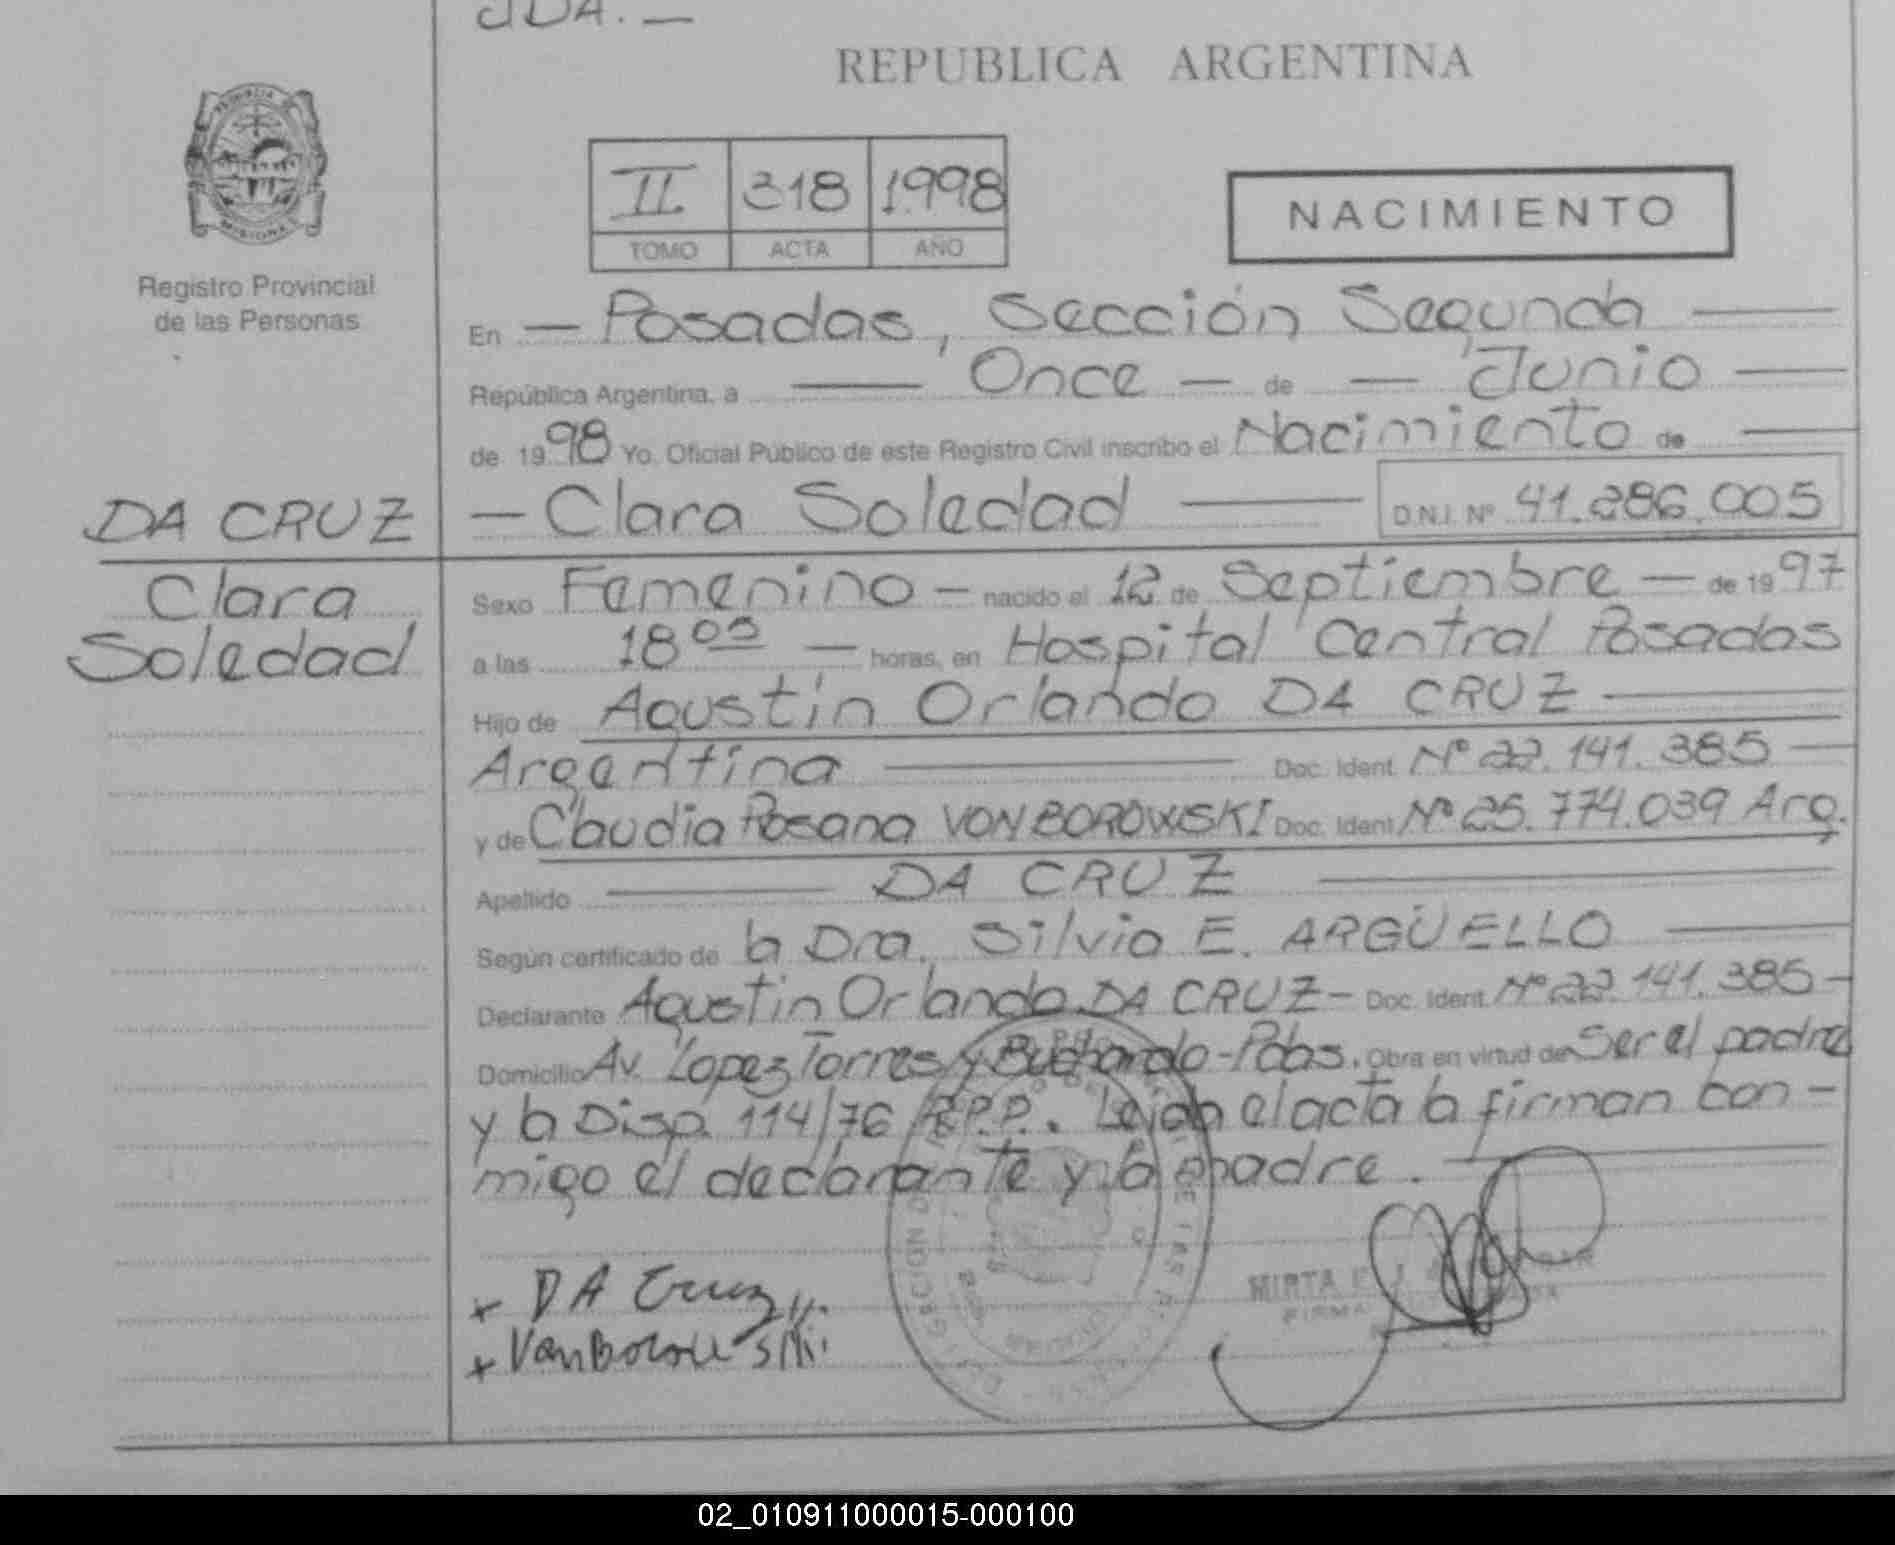 JDA. —
REPUBLICA ARGENTINA
II 318 1998
TOMO ACTA AÑO
NACIMIENTO
Registro Provincial
de las Personas
En — Posadas, Sección Segunda —
República Argentina, a — Once — de — Junio —
de 1998 Yo. Oficial Público de este Registro Civil inscribo el Nacimiento de —
— Clara Soledad — D.N.I. Nº 41.286.005
DA CRUZ
Clara
Soledad
Sexo Femenino — nacido el 12 de Septiembre — de 1997
a las 18 05 — horas, en Hospital Central Posadas
Hijo de Agustín Orlando DA CRUZ —
Argentina — Doc. Ident. Nº 22.141.385 —
y de Claudia Rosana VON BOROWSKI Doc. Ident. Nº 25.774.039 Arg.
Apellido — DA CRUZ —
Según certificado de la Dra. Silvia E. ARGÜELLO —
Declarante Agustín Orlando DA CRUZ — Doc. Ident. Nº 22.141.385 —
Domicilio Av. Lopez Torres y Buchardo - Pdas. Obra en virtud de Ser el padre
y la Disp. 114/76 R.P.P. Leída el acta la firman con -
migo el declarante y la madre. —
x DA Cruz
x Von Borowski
MIRTA
FIRMA
02_010911000015-000100